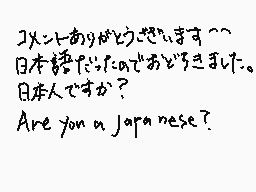 コメントありがとうございます^^
日本語だったのでおどろきました。
日本人ですか?
Are you a japanese?